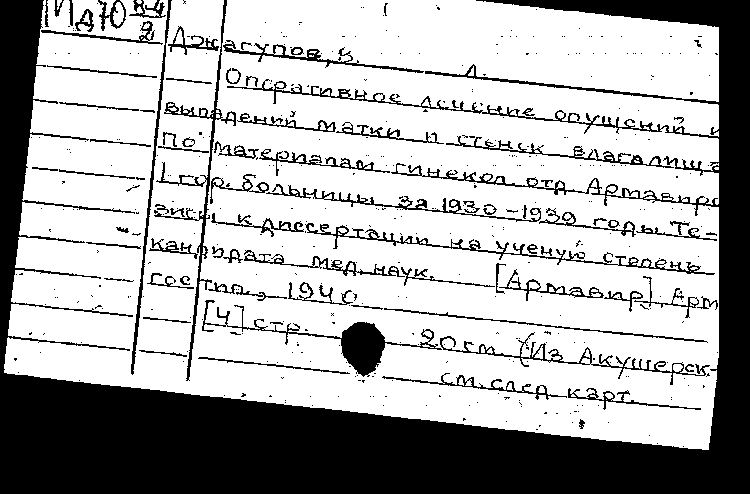 Оперативное лечение опущений и
выпадений матки и стенок влагалища
По материалам гинекол. отд. Армавирс
1 гор. больницы за 1930-1939 годы. Те-
зисы к диссертации на ученую степень
кандидата мед. наук. [Армавир], Арм
гостип., 1940
[4] стр. 20 см. (Из Акушерск-
см. след. карт.